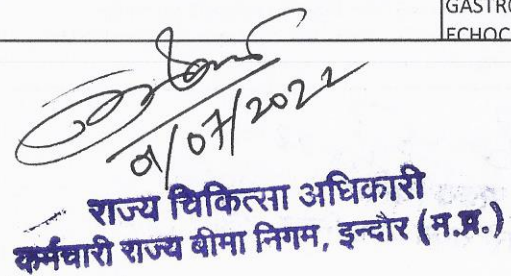 GASTRO
ECHOC
01/07/2022
राज्य चिकित्सा अधिकारी
कर्मचारी राज्य बीमा निगम, इन्दौर (म.प्र.)